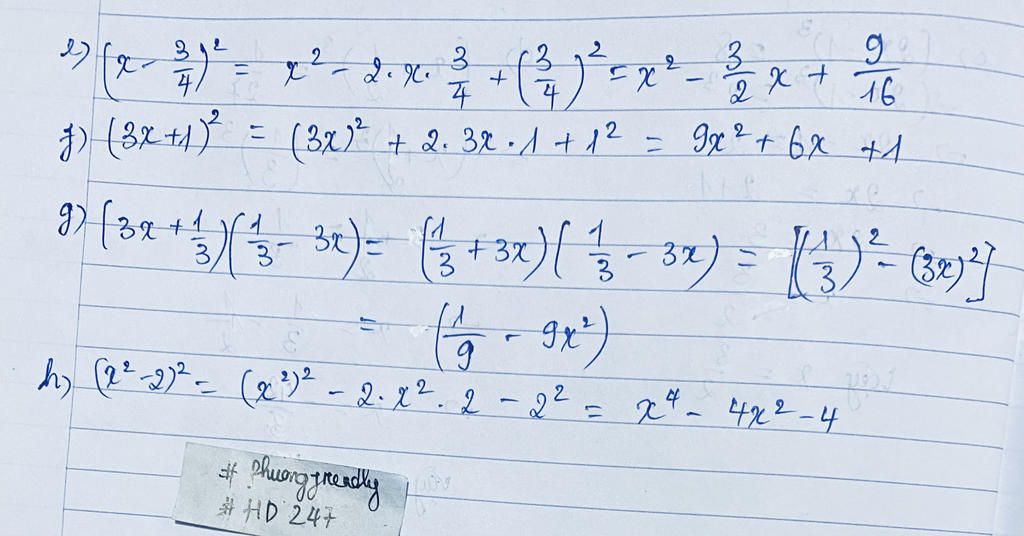 e) (x - 3/4)² = x² - 2.x.3/4 + (3/4)² = x² - 3/2 x + 9/16
f) (3x+1)² = (3x)² + 2.3x.1 + 1² = 9x² + 6x + 1
g) (3x + 1/3)(1/3 - 3x) = (1/3 + 3x)(1/3 - 3x) = [(1/3)² - (3x)²]
= (1/9 - 9x²)
h) (x² - 2)² = (x²)² - 2.x².2 - 2² = x⁴ - 4x² - 4
# Phuongfriendly
# HD 247